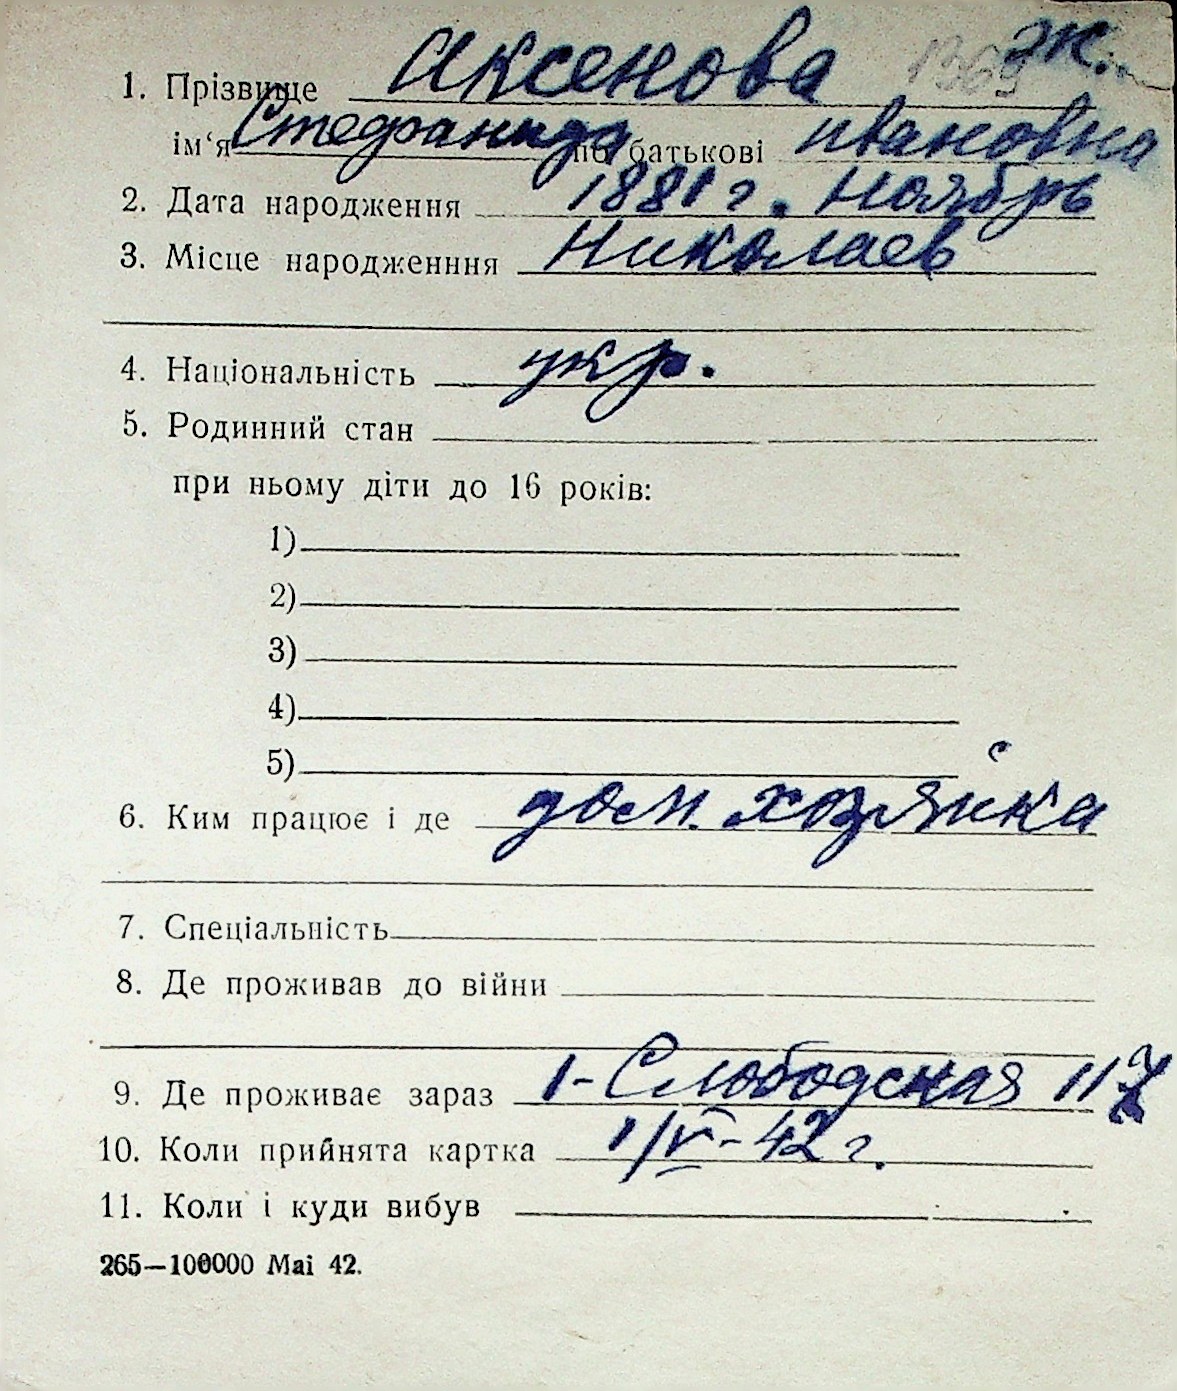 ж.
1369
1. Прізвище Аксенова
ім‘я Стефанида по батькові ивановна
2. Дата народження 1881 г. Ноябрь
3. Місце народженння Николаев
4. Національність укр.
5. Родинний стан
при ньому діти до 16 років:
1)
2)
3)
4)
5)
6. Ким працює і де дом. хозяйка
7. Спеціальність
8. Де проживав до війни
9. Де проживає зараз 1-Слободская 117
10. Коли прийнята картка 1/V-42 г.
11. Коли і куди вибув
265—100000 Маі 42.